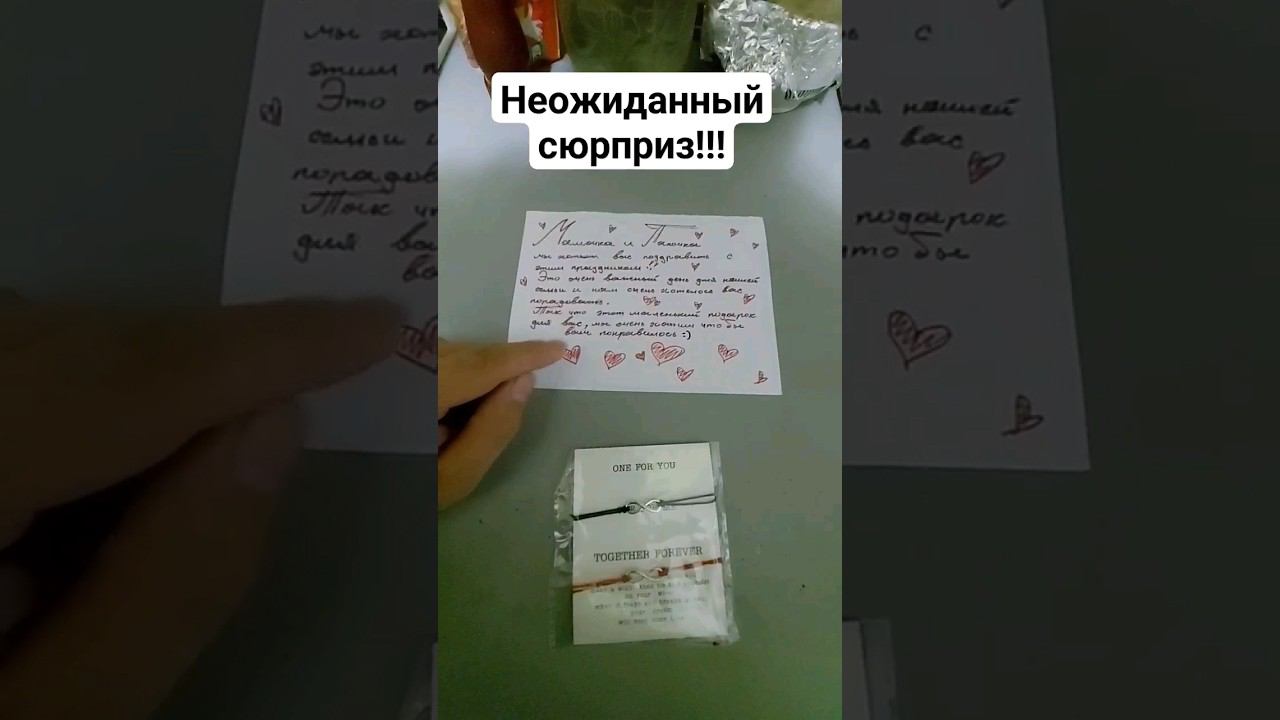 Неожиданный
сюрприз!!!
Мамочка и Папочка
мы хотим вас поздравить с
этим праздником!!
Это очень важный день для нашей
семьи и нам очень хотелось вас
порадовать.
Так что этот маленький подарок
для вас, мы очень хотим что бы
вам понравилось:)
ONE FOR YOU
TOGETHER FOREVER